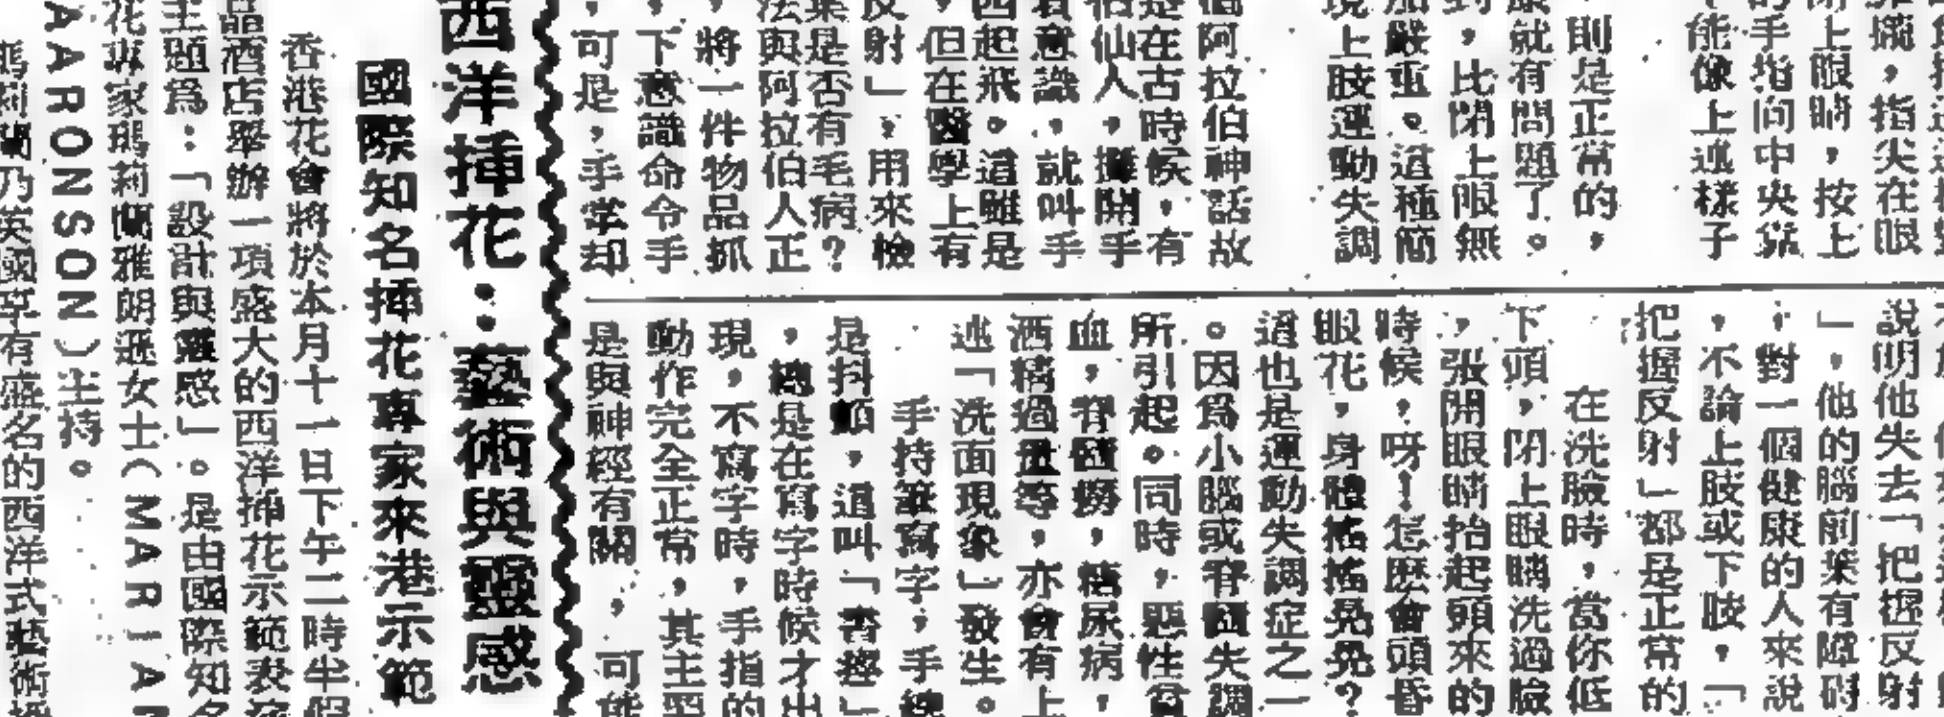 能像上述樣子
的手指向中央靠
閉上眼睛，按上
攏，指尖在眼
，則是正常的，
康就有問題了。
，比閉上眼無
加嚴重。這種簡
現上肢運動失調
個阿拉伯神話故
是在古時候，有
伯仙人，攤開手
有意識，就叫手
四起飛。這雖是
，但在醫學上有
反射」，用來檢
葉是否有毛病？
法與阿拉伯人正
，將一件物品抓
，下意識命令手
，可是，手掌却
說明他失去「把握反射
」，他的腦前葉有障碍
，對一個健康的人來說
，不論上肢或下肢，「
把握反射」都是正常的
在洗臉時，當你低
下頭，閉上眼睛洗過臉
，張開眼睛抬起頭來的
時候，呀！怎麽會頭昏
眼花，身體搖搖晃晃？
這也是運動失調症之一
。因爲小腦或脊髓失調
所引起。同時，惡性貧
血，脊髓癆，糖尿病，
洒精過量等，亦會有上
述「洗面現象」發生。
手持筆寫字，手總
是抖顫，這叫「書痙」
，總是在寫字時候才出
現，不寫字時，手指的
動作完全正常，其主要
是與神經有關，可能
西洋揷花：藝術與靈感
國際知名揷花專家來港示範
香港花會將於本月十一日下午二時半假
酒店舉辦一項盛大的西洋揷花示範表演
主題爲：「設計與靈感」。是由國際知名
花專家瑪莉蘭雅朗遜女士（MARIAN
AARONSON）主持。
瑪莉蘭乃英國享有盛名的西洋式藝術揷